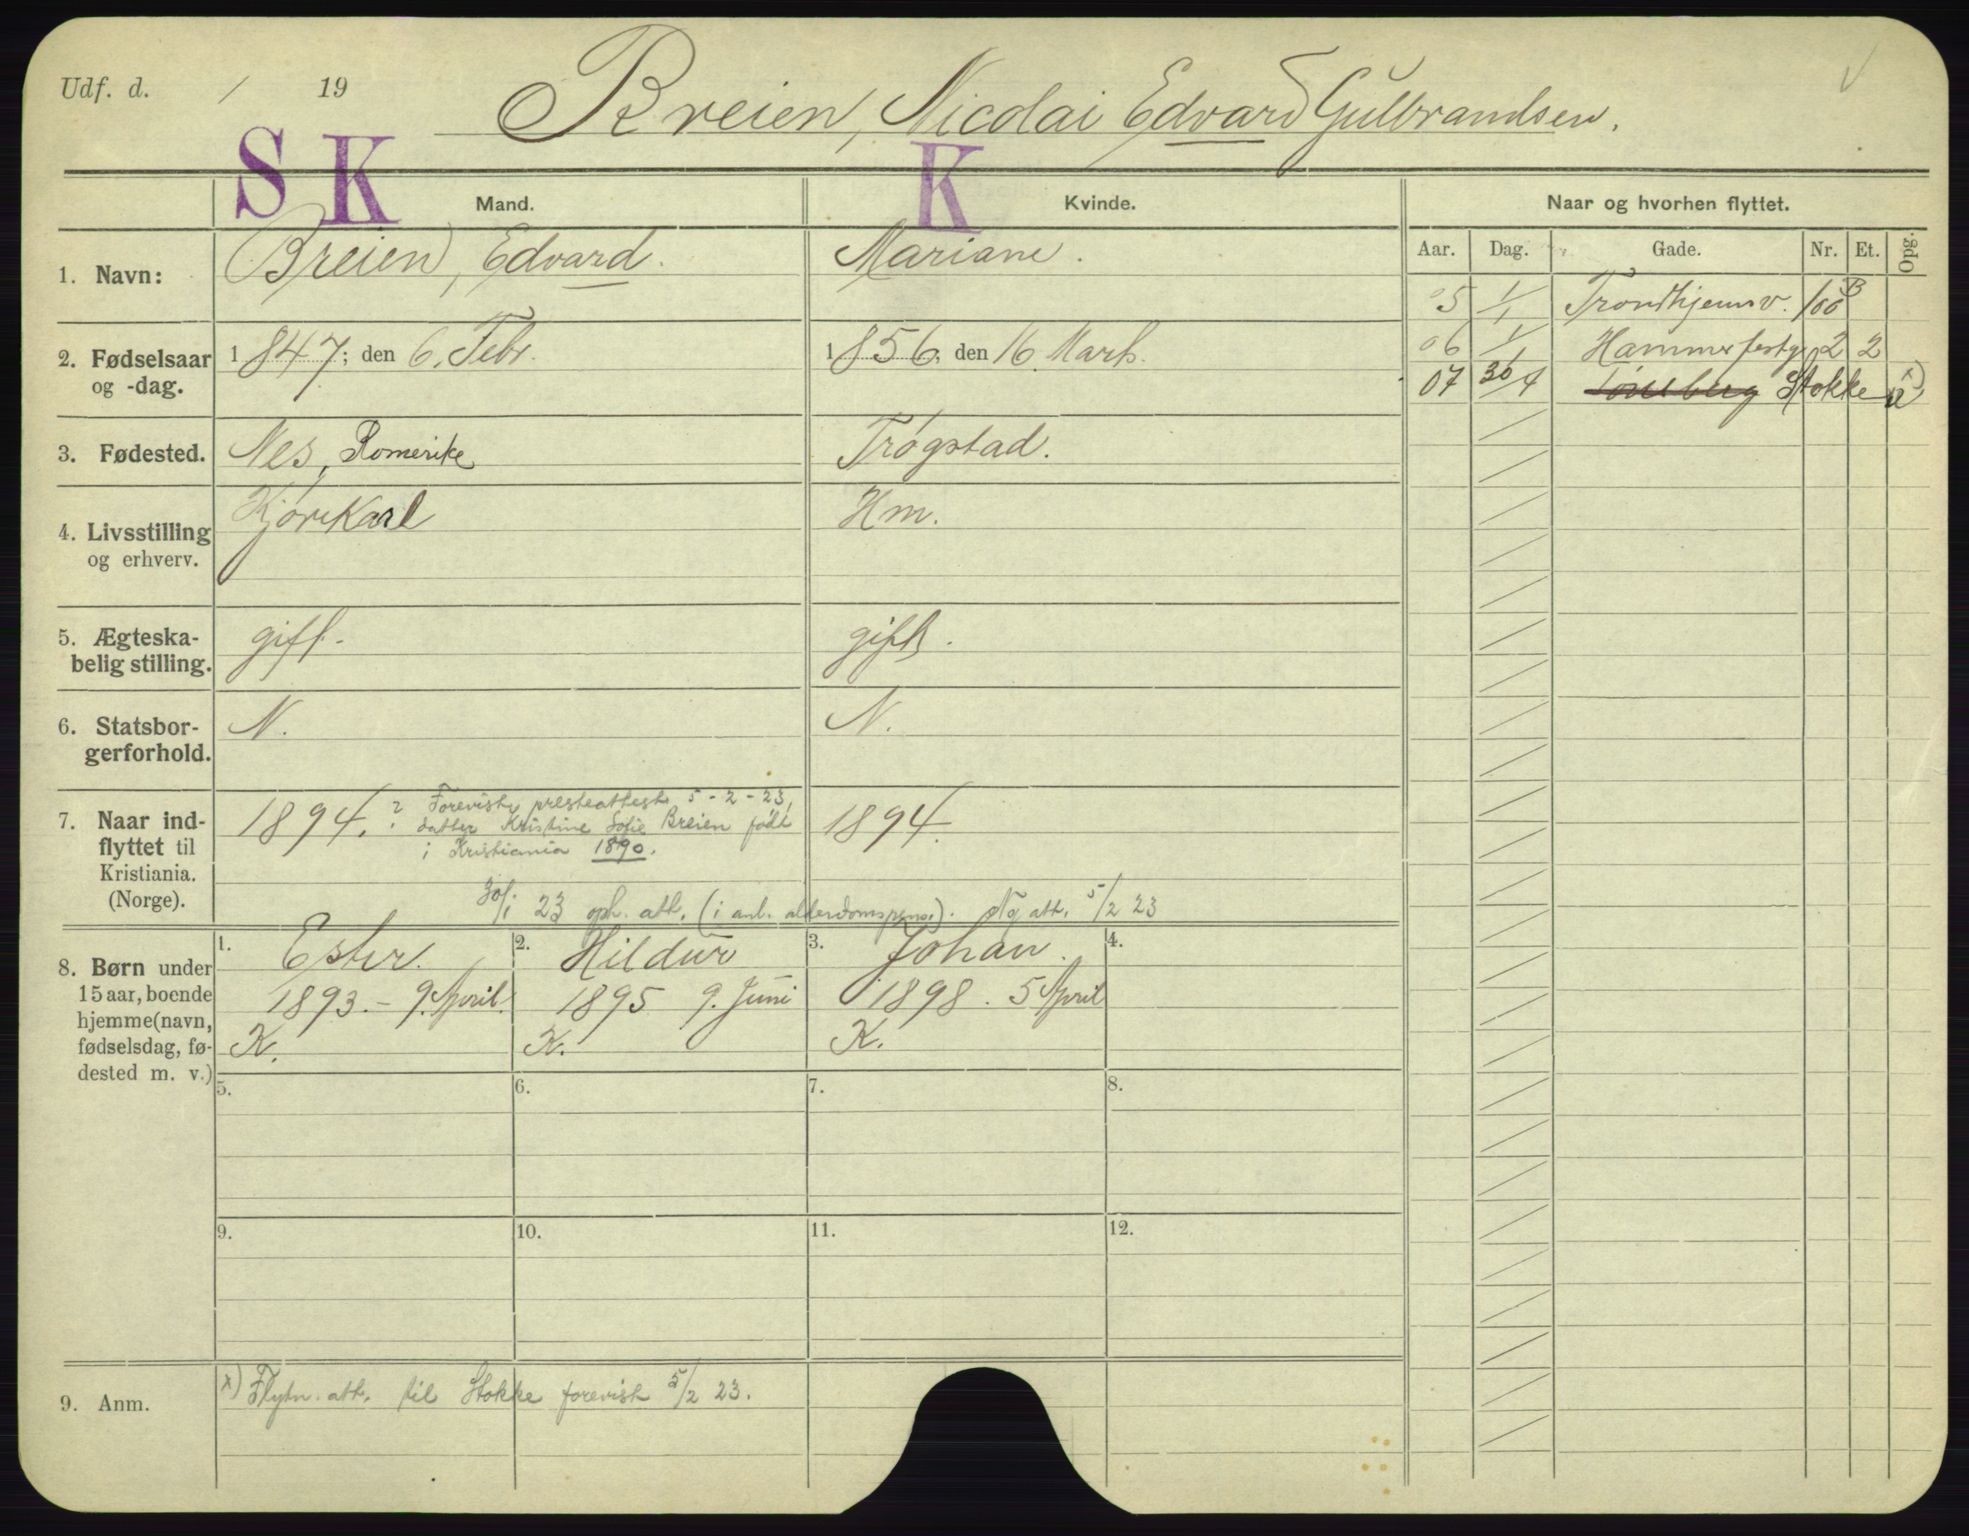 Udf. d. / 19
Breien, Nicolai Edvard Gulbrandsen.
S K K
Mand. Kvinde. Naar og hvorhen flyttet.
Aar. Dag. Gade. Nr. Et. Opg.
1. Navn: Breien, Edvard. Mariane.
05 1/1 Trondhjemsv. 100 B
2. Fødselsaar og -dag. 1847; den 6. Febr. 1856, den 16 Marts.
06 1/1 Hammerfestg. 2 2
07 30/4 Tønsberg Stokke x)
3. Fødested. Nes, Romerike Trøgstad.
4. Livsstilling og erhverv. Kjørekarl Hm.
5. Ægteska-
belig stilling. gift. gift.
6. Statsbor-
gerforhold. N. N.
7. Naar ind-
flyttet til
Kristiania.
(Norge).
1894. ? Forevist presteattest 5-2-23,
datter Kristine Sofie Breien født
i Kristiania 1890.
1894
30/1 23 oph. att. (i anl. alderdomspens.). Ny att. 5/2 23
8. Børn under
15 aar, boende
hjemme (navn,
fødselsdag, fø-
dested m. v.)
1. Ester. 2. Hildur 3. Johan. 4.
1893 - 9. April. 1895 9. Juni 1898. 5 April
K. K. K.
5. 6. 7. 8.
9. 10. 11. 12.
9. Anm. x) Flytn. att. til Stokke forevist 5/2 23.